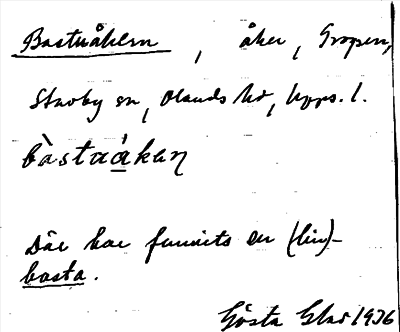 Bastuåkern , åker, Gropen,
Stavby sn, Olands hd, Upps. l.
bàstaåkαη
Där har funnits en (lin)-
basta.
Gösta Glas 1936